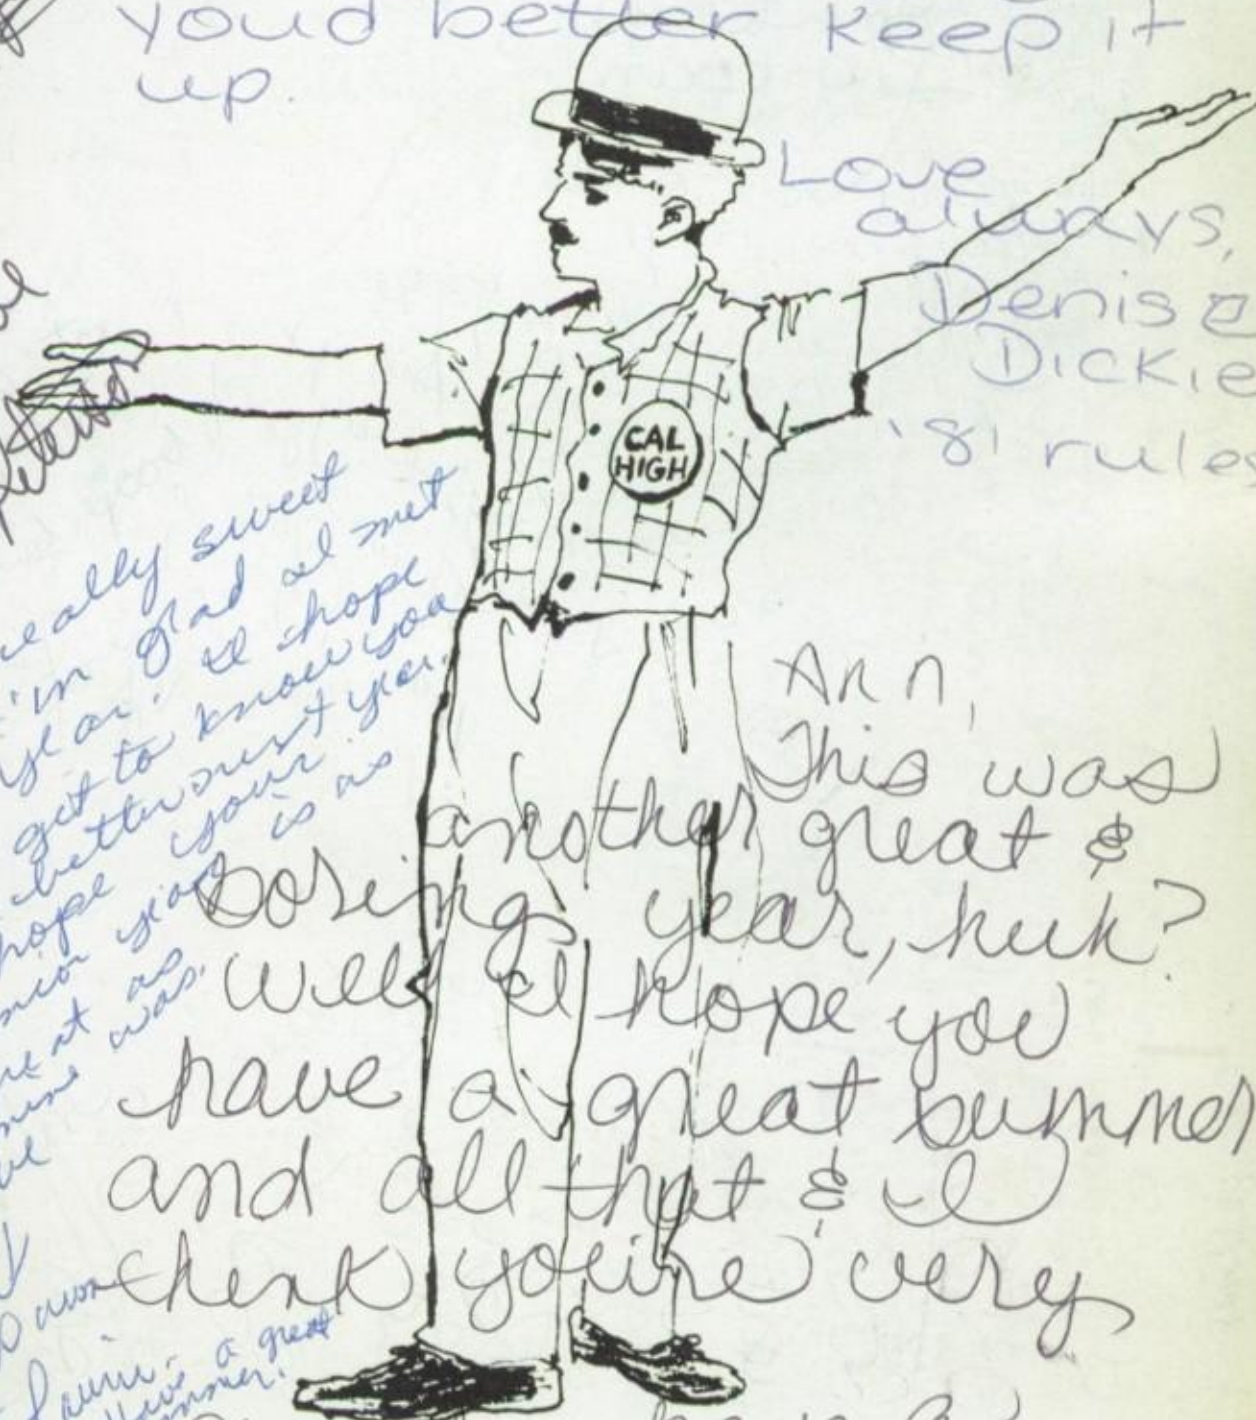 you'd better keep it
up.
Love
always,
Denise
Dickie
'81 rules
CAL
HIGH
really sweet
I'm glad I met
year. I hope
get to know you
better next year.
hope your
year is as
as
mine was.
Ann,
This was
another great &
boring year, huh?
Well I hope you
have a great summer
and all that & I
think you're very
Laurie
Have a great
summer!